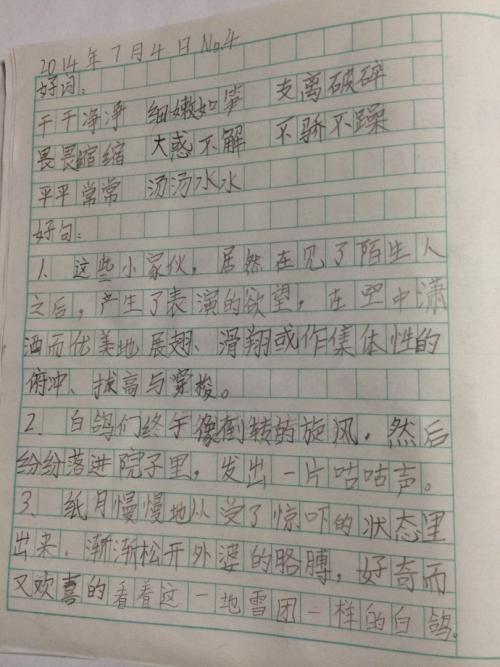 2014年7月4日 No.4
好词:
干干净净 细嫩如笋 支离破碎
畏畏缩缩 大惑不解 不骄不躁
平平常常 汤汤水水
好句:
1. 这些小家伙，居然在见了陌生人
之后，产生了表演的欲望，在空中潇
洒而优美地展翅、滑翔或作集体性的
俯冲、拔高与穿梭。
2. 白鸽们终于像倒转的旋风，然后
纷纷落进院子里，发出一片咕咕声。
3. 纸月慢慢地从受了惊吓的状态里
出来，渐渐松开外婆的胳膊，好奇而
又欢喜的看着这一地雪团一样的白鸽。